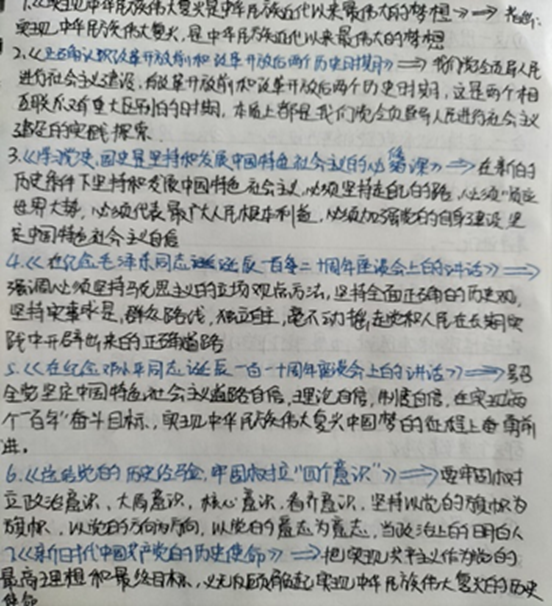 1.《实现中华民族伟大复兴是中华民族近代以来最伟大的梦想》→
实现中华民族伟大复兴,是中华民族近代以来最伟大的梦想
2.《正确认识改革开放前和改革开放后两个历史时期》→我们党领导人民
进行社会主义建设,有改革开放前和改革开放后两个历史时期,这是两个相
互联系又有重大区别的时期,本质上都是我们党领导人民进行社会主义
建设的实践探索
3.《学习党史、国史是坚持和发展中国特色社会主义的必修课》→在新的
历史条件下坚持和发展中国特色社会主义,必须坚持走自己的路,必须顺应
世界大势,必须代表最广大人民根本利益,必须加强党的自身建设,坚
定中国特色社会主义自信
4.《在纪念毛泽东同志诞辰一百二十周年座谈会上的讲话》→
强调必须坚持马克思主义的立场观点方法,坚持全面正确的历史观,
坚持实事求是,群众路线,独立自主,毫不动摇走党和人民在长期实
践中开辟出来的正确道路
5.《在纪念邓小平同志诞辰一百一十周年座谈会上的讲话》→号召
全党坚定中国特色社会主义道路自信,理论自信,制度自信,在实现两
个“百年”奋斗目标、实现中华民族伟大复兴中国梦的征程上奋勇前
进。
6.《总结党的历史经验,牢固树立“四个意识”》→要牢固树
立政治意识、大局意识、核心意识、看齐意识,坚持以党的旗帜为
旗帜、以党的方向为方向,以党的意志为意志,当政治上的明白人
7.《新时代中国共产党的历史使命》→把实现共产主义作为党的
最高理想和最终目标,义无反顾肩负起实现中华民族伟大复兴的历史
使命